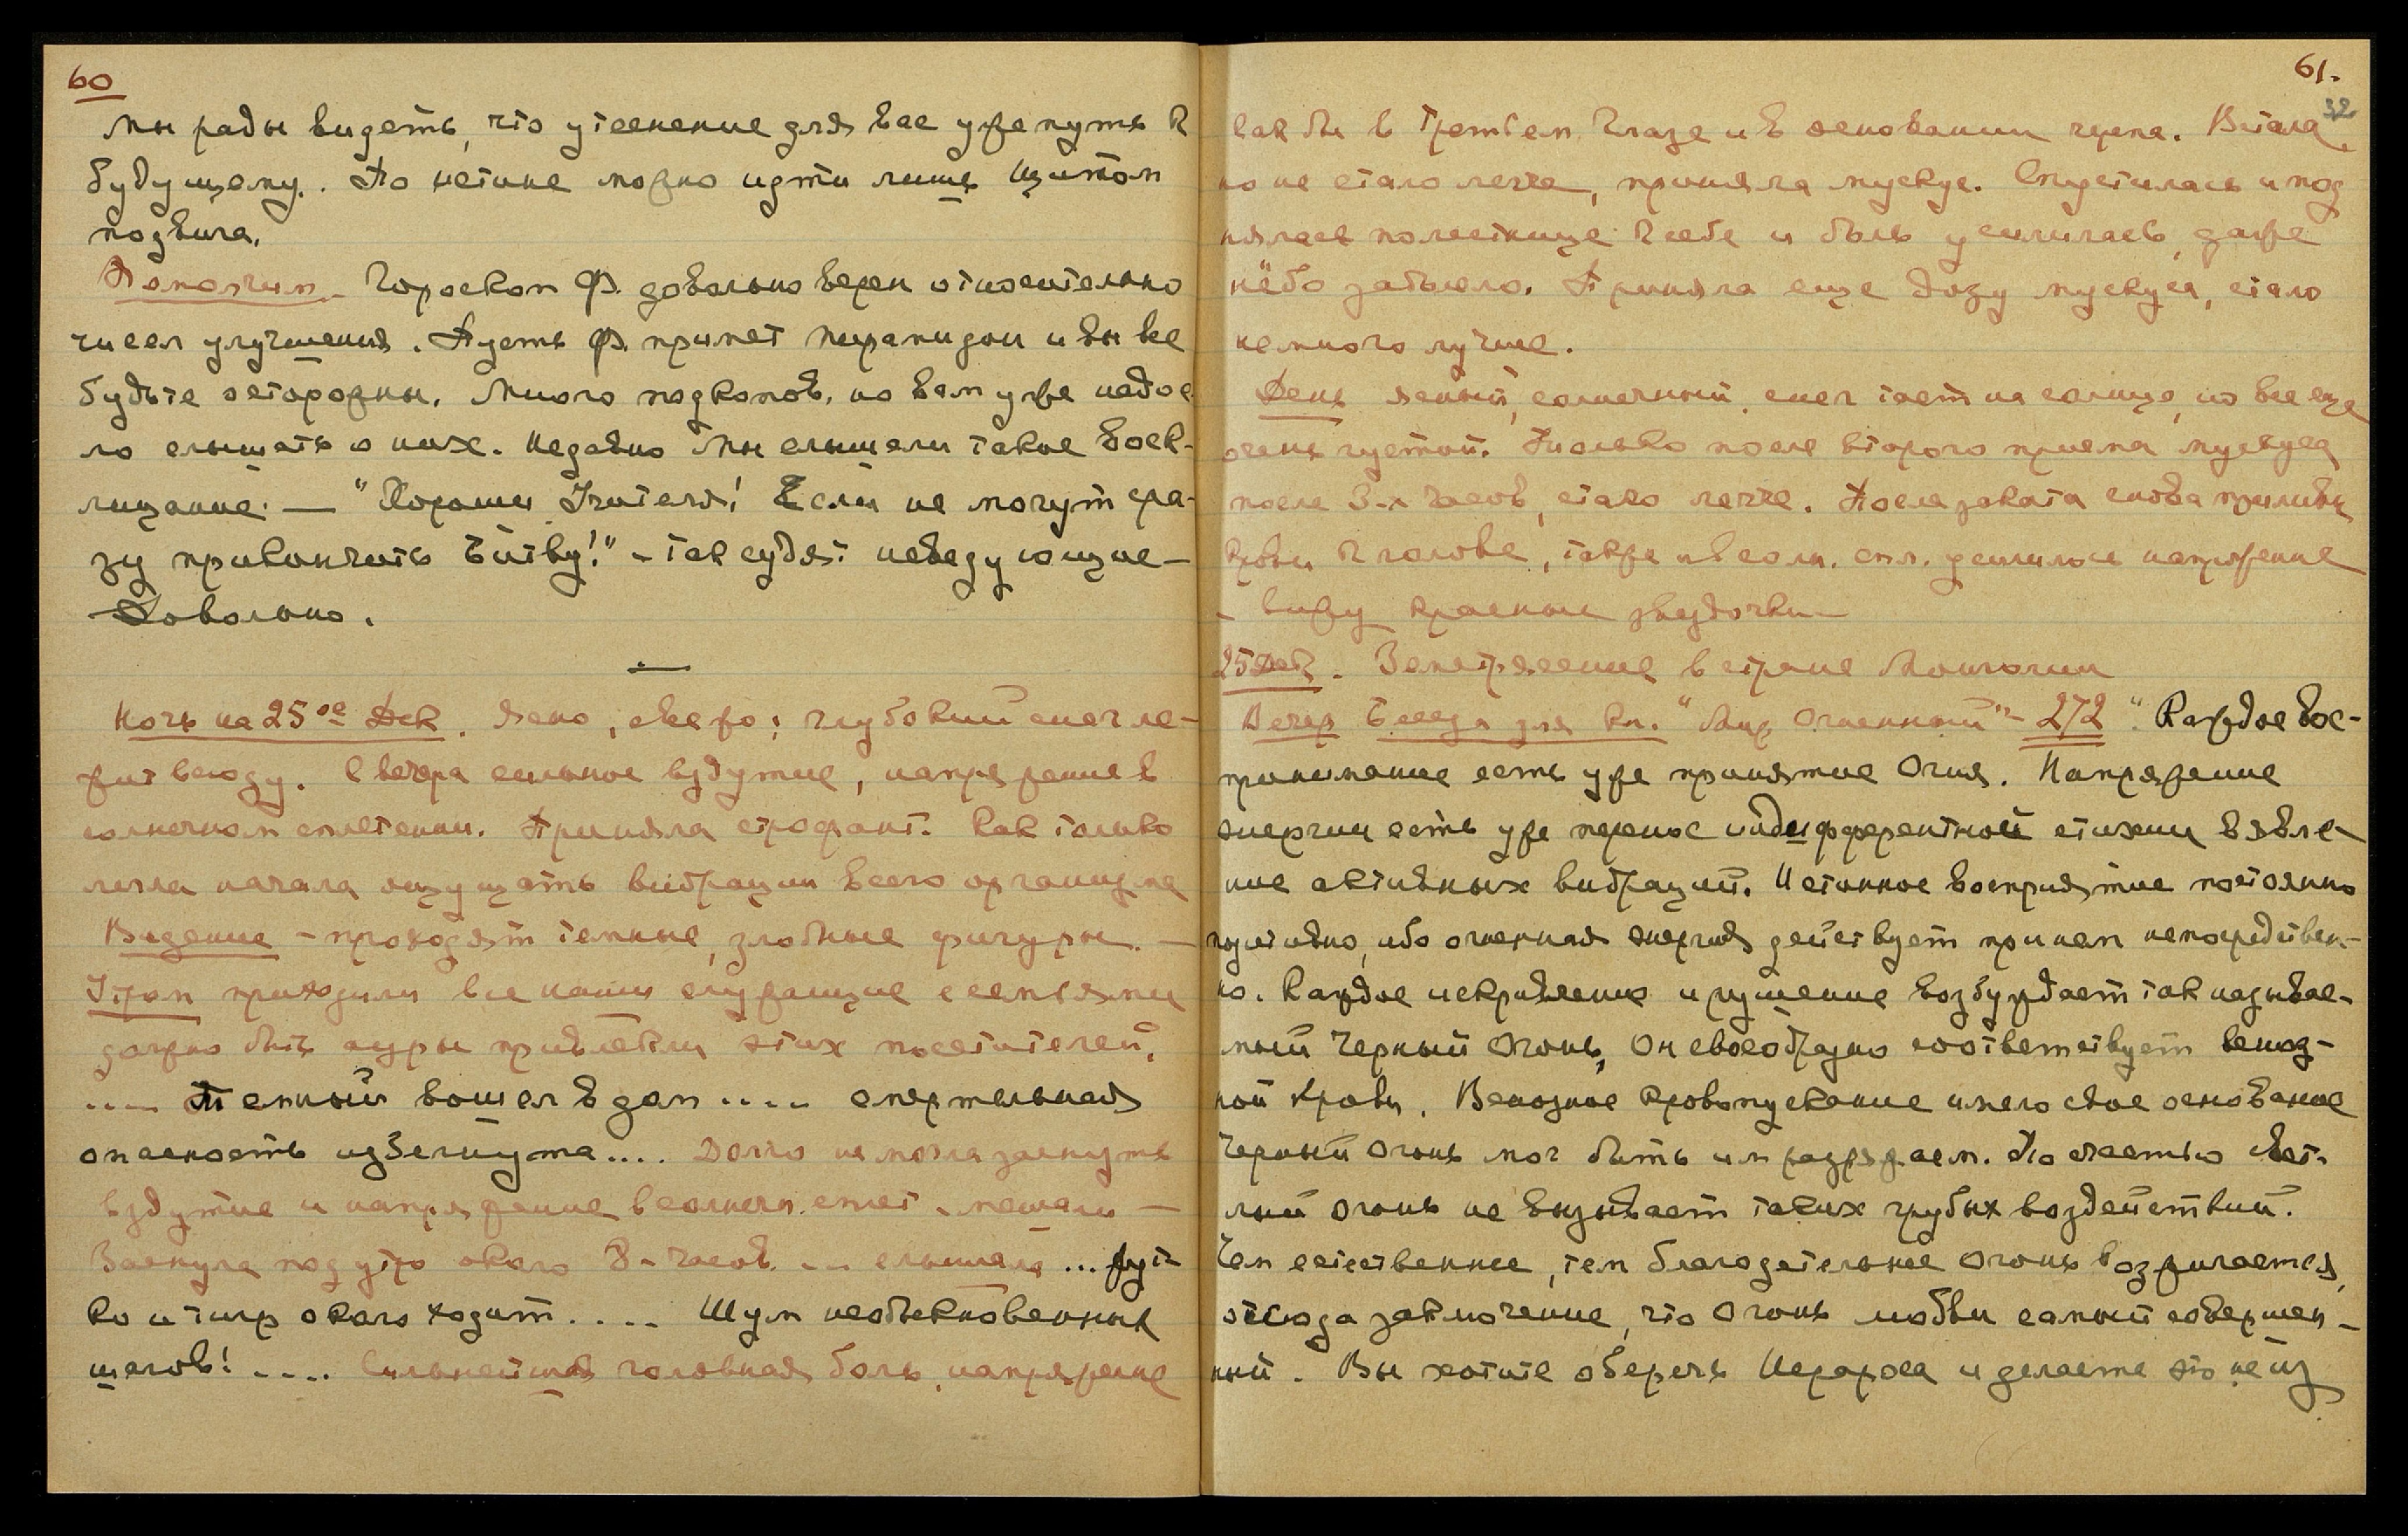 60
Мы рады видеть, что утеснение для вас уже путь к
будущему. По истине можно идти лишь щитом
подвига.
Помолчим - Гороскоп Ф. довольно верен относительно
чисел улучшения. Пусть Ф. примет пирамидон и вы все
будьте осторожны. Много подкопов, но вам уже надое-
ло слышать о них. Недавно Мы слышали такое воск-
лицание. — "Хороши Учителя! Если не могут сра-
зу прикончить битву!" - так судят неведующие -
Довольно.
Ночь на 25ое Дек. Ясно, свежо; глубокий снег ле-
жит всюду. С вечера сильное вздутие, напряжение в
солнечном сплетении. Приняла строфант. Как только
легла начала ощущать вибрации всего организма
Видение - проходят темные, злобные фигуры. —
Утром приходили все наши служащие с семьями
должно быть ауры привлекли этих посетителей,
.... Темный вошел в дом .... смертельная
опасность избегнута.... Долго не могла заснуть
вздутие и напряжение в солнечн. сплет. мешали —
Заснула под утро около 3-часов ... слышала ... жут-
ко и тигр около ходит .... Шум необыкновенных
шагов! .... Сильнейшая головная боль, напряжение
61.
32
как бы в Третьем Глазе и в основании черепа. Встала,
но не стало легче, приняла мускус. Спустилась и под
нялась по лестнице к себе и боль усилилась, даже
нёбо заболело. Приняла еще дозу мускуса, стало
немного лучше.
День ясный, солнечный, снег тает на солнце, но все еще
очень густой. Только после второго приема мускуса
после 3-х часов, стало легче. После заката снова приливы
крови к голове, также и в солн. спл. усилилось напряжение
- вижу красные звездочки —
25 Дек. Землетрясение в стране Монголии
Вечер Беседа для кн. "Мир Огненный" - 272 "Каждое вос-
принимание есть уже принятие Огня. Напряжение
энергии есть уже перенос индифферентной стихии в явле-
ние активных вибраций. Истинное восприятие постоянно
позитивно, ибо огненная энергия действует при нем непосредствен-
но. Каждое искривление и рушение возбуждает так называе-
мый Черный Огонь, он своеобразно соответствует веноз-
ной крови. Венозное кровопускание имело свое основание
Черный огонь мог быть им разряжаем. По счастью Свет-
лый огонь не вызывает таких грубых воздействий.
Чем естественнее, тем благодетельнее Огонь возжигается,
отсюда заключение, что Огонь любви самый совершен-
ный. Вы хотите оберечь Иерарха и делаете это не из